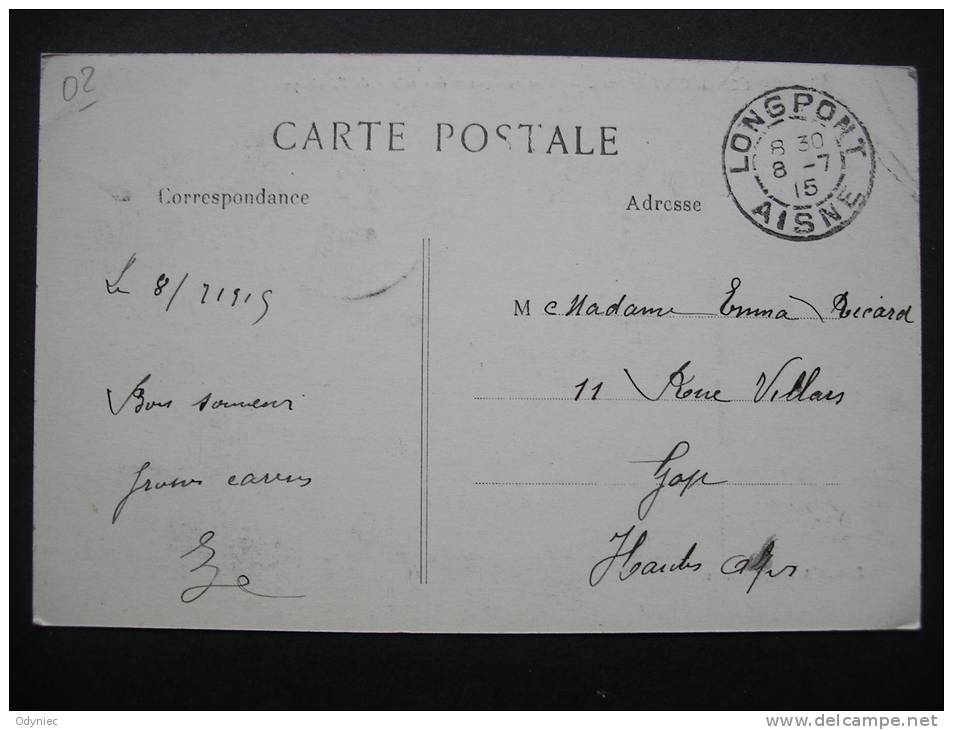 02
CARTE POSTALE
LONGPONT
8 30
8 -7
15
AISNE
Correspondance
Adresse
Le 8/7 1915
Bon souvenir
M e Madame Emma Ricard
11 Rue Villars
Gap
Hautes Alpes
Odyniec
www.delcampe.net